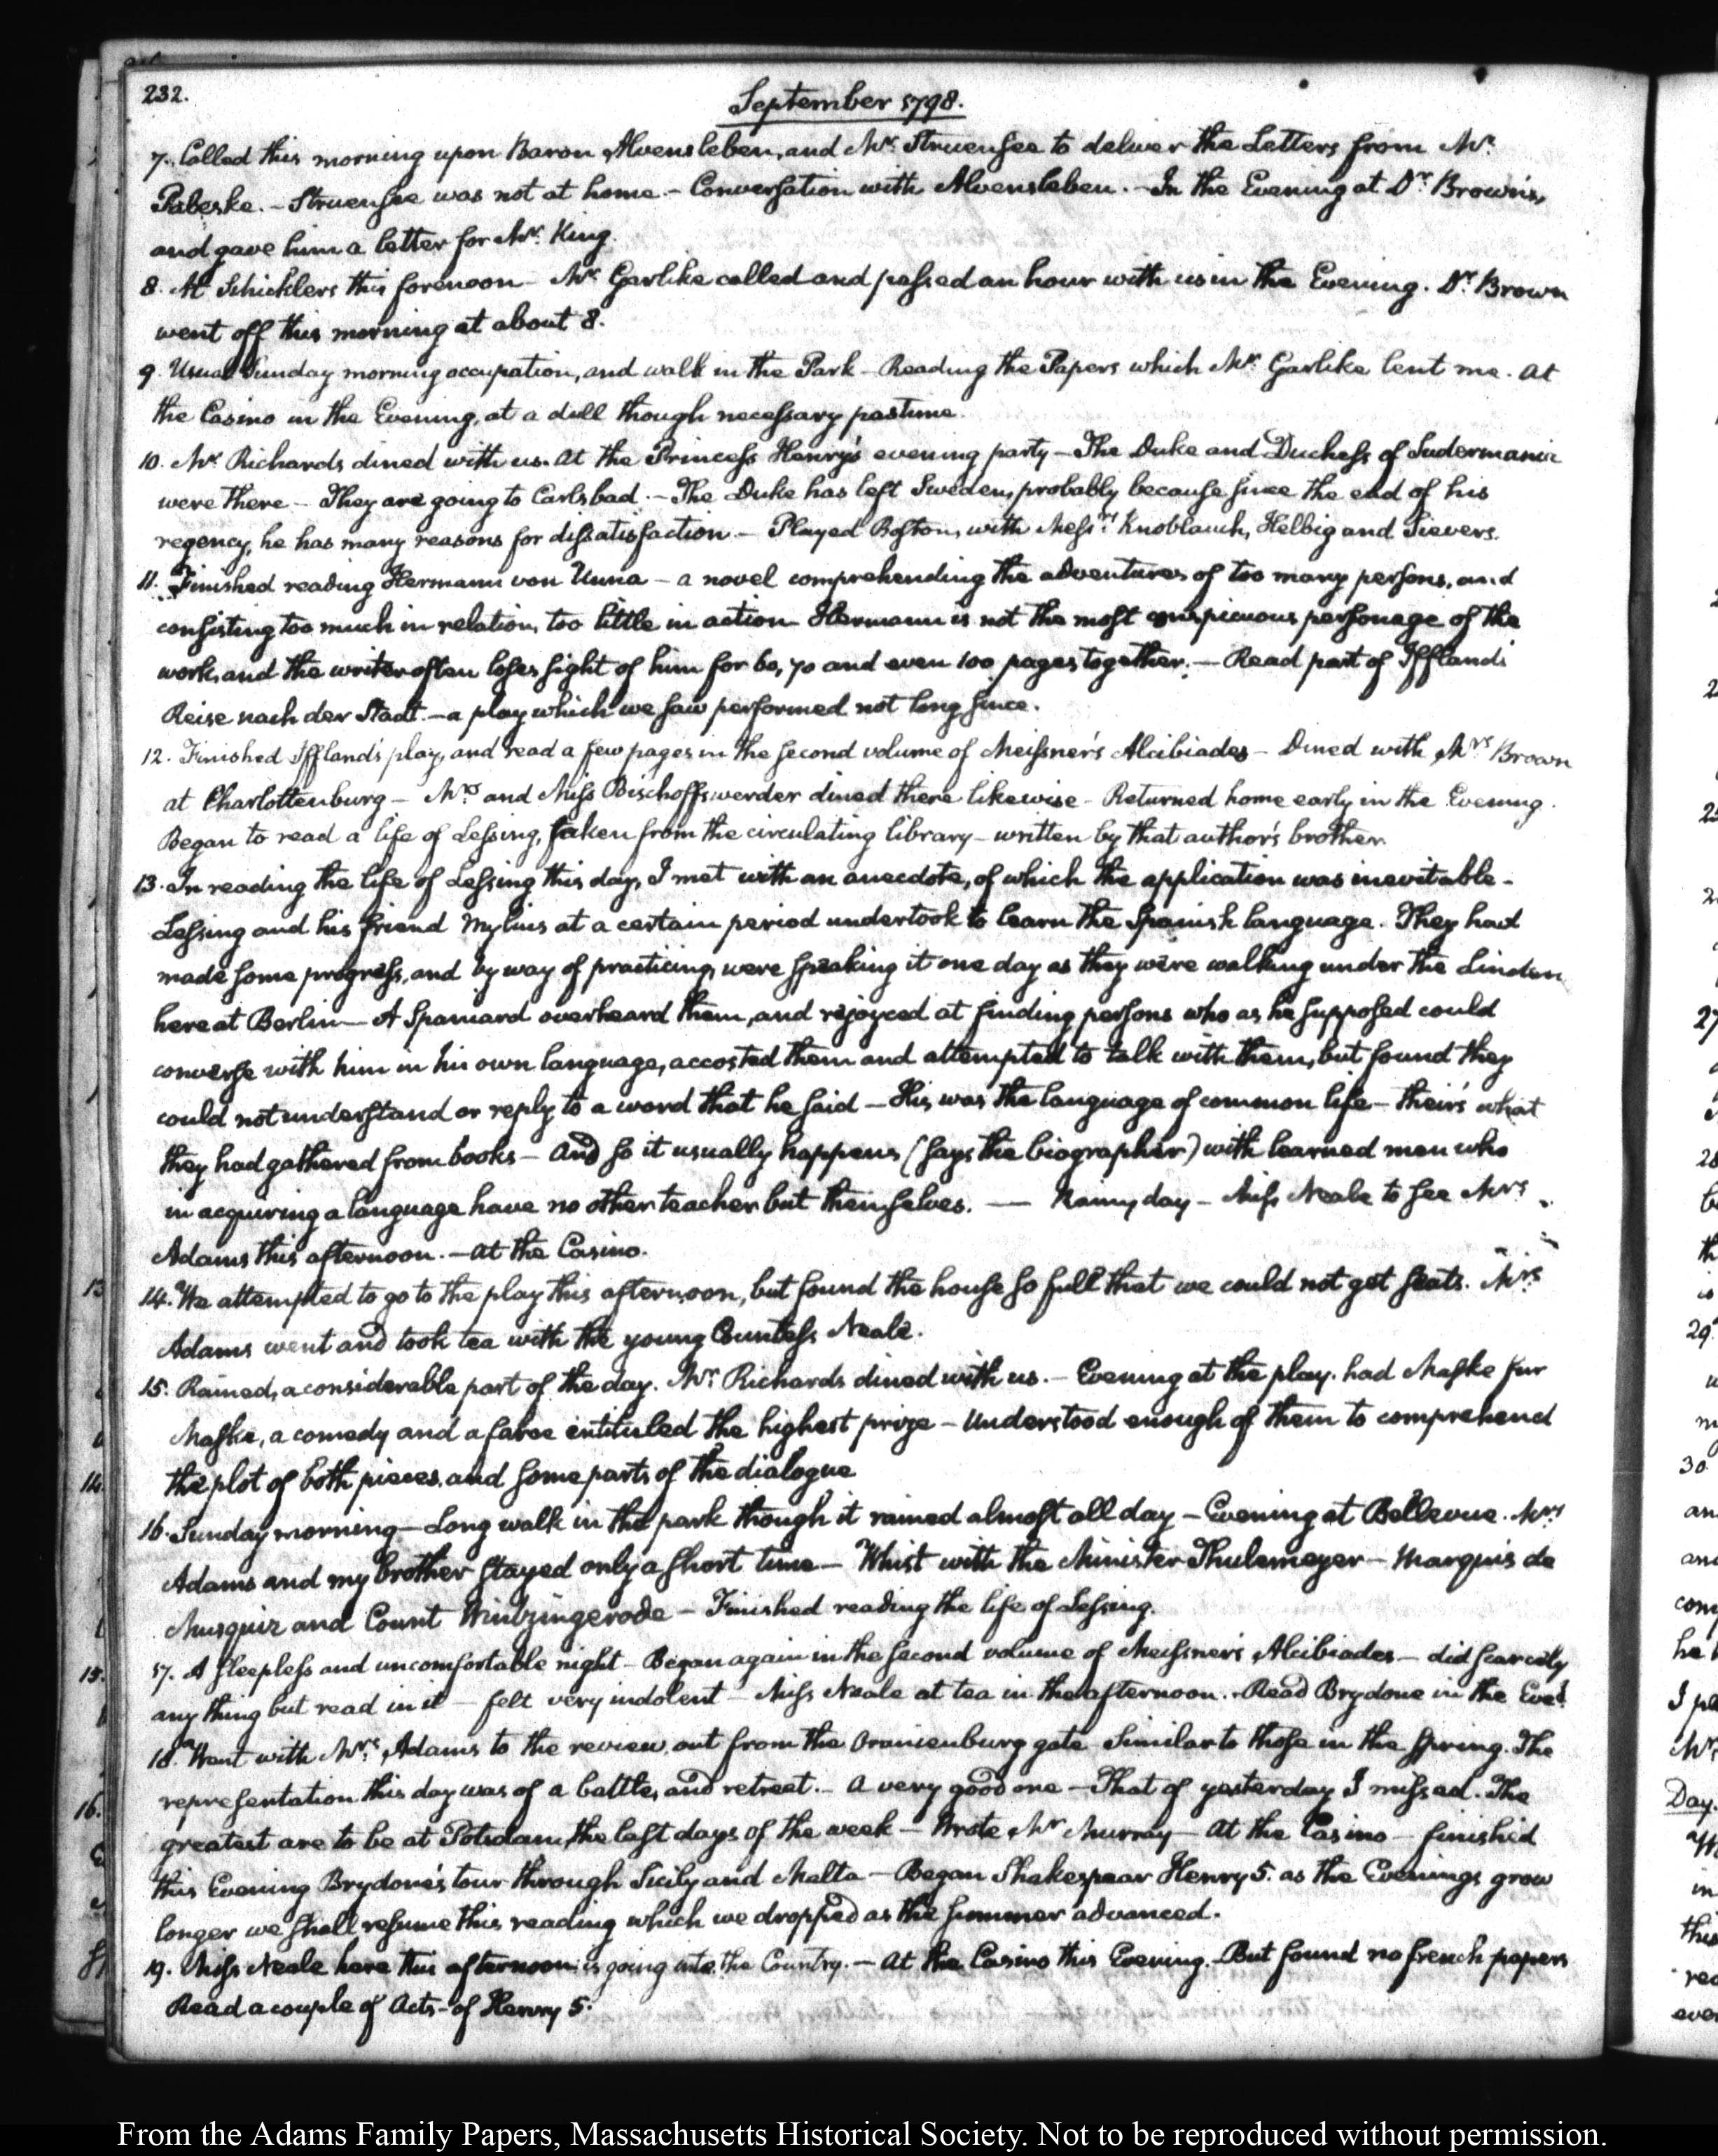 232.
September 1798.
7. Called this morning upon Baron Alvensleben, and Mr. Struensee to deliver the Letters from Mr.
Pabeske. – Struensee was not at home. – Conversation with Alvensleben. – In the Evening at Dr. Brown's,
and gave him a letter for Mr. King.
8. At Schicklers this forenoon – Mr. Garlike called and passed an hour with us in the Evening. Dr. Brown
went off this morning at about 8.
9. Usual Sunday morning occupation, and walk in the Park – Reading the Papers which Mr. Garlike lent me. At
the Casino in the Evening, at a dull though necessary pastime.
10. Mr. Richards dined with us. At the Princess Henry's evening party – The Duke and Duchess of Sudermania
were there – They are going to Carlsbad. – The Duke has left Sweden, probably because since the end of his
regency, he has many reasons for dissatisfaction – Played Boston, with Messrs. Knoblauch, Helbig and Sievers.
11. Finished reading Hermann von Unna – a novel comprehending the adventures of too many persons, and
consisting too much in relation, too little in action – Hermann is not the most conspicuous personage of the
work, and the writer often loses sight of him for 60, 70 and even 100 pages together. – Read part of Iffland's
Reise nach der Stadt. – a play which we saw performed not long since.
12. Finished Iffland's play, and read a few pages in the second volume of Meissner's Alcibiades – Dined with Mrs Brown
at Charlottenburg – Mrs and Miss Bischoffswerder dined there likewise – Returned home early in the Evening.
Began to read a life of Lessing, taken from the circulating library – written by that author's brother.
13. In reading the life of Lessing this day, I met with an anecdote, of which the application was inevitable –
Lessing and his friend Mylius at a certain period undertook to learn the Spanish language. They had
made some progress, and by way of practicing, were speaking it one day as they were walking under the Linden
here at Berlin – A Spaniard overheard them, and rejoyced at finding persons who as he supposed could
converse with him in his own language, accosted them and attempted to talk with them, but found they
could not understand or reply to a word that he said – His was the language of common life – theirs what
they had gathered from books – And so it usually happens (says the biographer) with learned men who
in acquiring a language have no other teacher but themselves. — Rainy day – Miss Neale to see Mrs
Adams this afternoon. – At the Casino.
14. We attempted to go to the play this afternoon, but found the house so full that we could not get seats. Mrs.
Adams went and took tea with the young Countess Neale.
15. Rained, a considerable part of the day. Mr. Richards dined with us. – Evening at the play. had Maske fur
Maske, a comedy and a farce entituled the highest prize – Understood enough of them to comprehend
the plot of both pieces, and some parts of the dialogue
16. Sunday morning – Long walk in the park though it rained almost all day – Evening at Bellevue. Mrs.
Adams and my brother stayed only a short time – Whist with the Minister Thulemeyer – Marquis de
Musquiz and Count Wintzingerode – Finished reading the life of Lessing.
17. A sleepless and uncomfortable night – Began again in the second volume of Meissner's Alcibiades – did scarcely
any thing but read in it – felt very indolent – Miss Neale at tea in the afternoon. Read Brydone in the Eveg.
18. Went with Mrs. Adams to the review, out from the Oranienburg gate Similar to those in the spring. The
representation this day was of a battle, and retreat. – A very good one – That of yesterday I missed. The
greatest are to be at Potsdam, the last days of the week – Wrote Mr Murray – At the Casino – finished
this Evening Brydone's tour through Sicily and Malta – Began Shakespear Henry 5. as the Evenings grow
longer we shall resume this reading which we dropped as the summer advanced.
19. Miss Neale here this afternoon: is going into the Country. – At the Casino this Evening. But found no french papers
Read a couple of Acts of Henry 5.
From the Adams Family Papers, Massachusetts Historical Society. Not to be reproduced without permission.